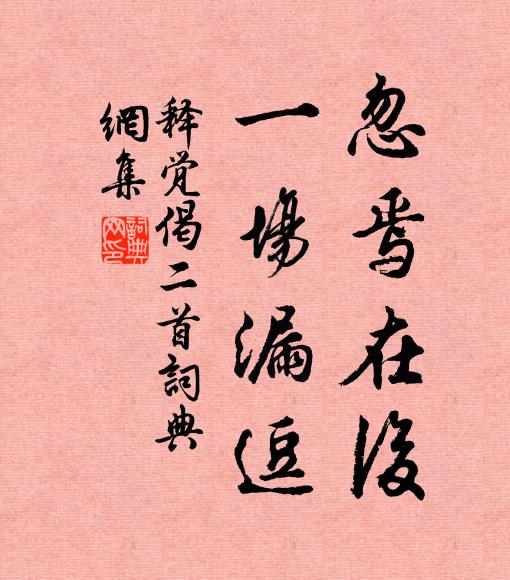 忽焉在後
一場漏逗
释觉偈二首詞典
網集
詞典
网印